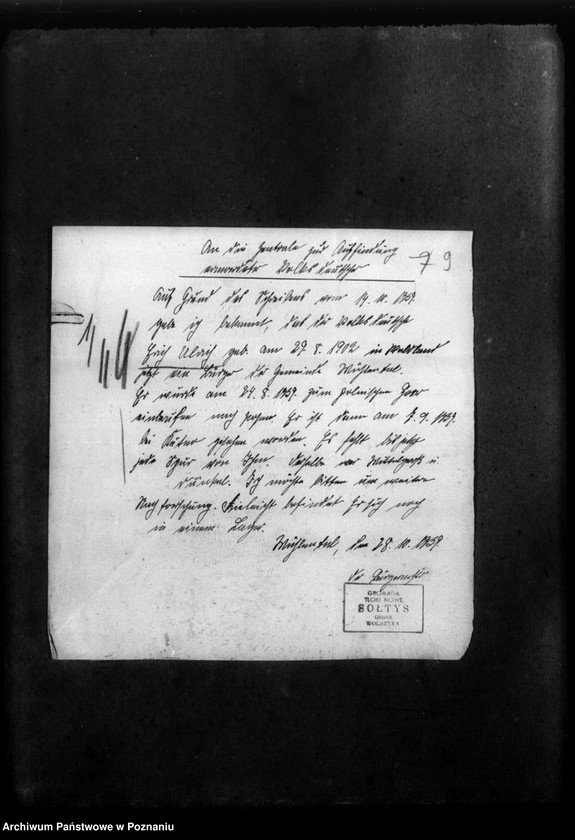 An die Zentrale zur Auffindung
ermordeter Volksdeutscher
7 9
Auf Grund des Schreibens vom 19. 10. 1939.
gebe ich bekannt, das der Volksdeutsche
Erich geb. am 29. 8. 1902 in
jetzt ein Bürger der Gemeinde Mühlental.
Er wurde am 24. 8. 1939. zum polnischen Heer
Er ist dann am 7. 9. 1939.
bei Kutno gesehen worden. Es fehlt bis jetzt
jede Spur von Ihm. Derselbe war Mittelgroß u.
Dunkel. Ich möchte bitten um weitere
Nachforschung. Vielleicht befindet Er sich noch
in einem Lager.
Mühlental, den 28. 10. 1939.
Der Bürgermeister
GROMADA
TŁOKI NOWE
SOŁTYS
GMINA
WOLSZTYN
Archiwum Państwowe w Poznaniu